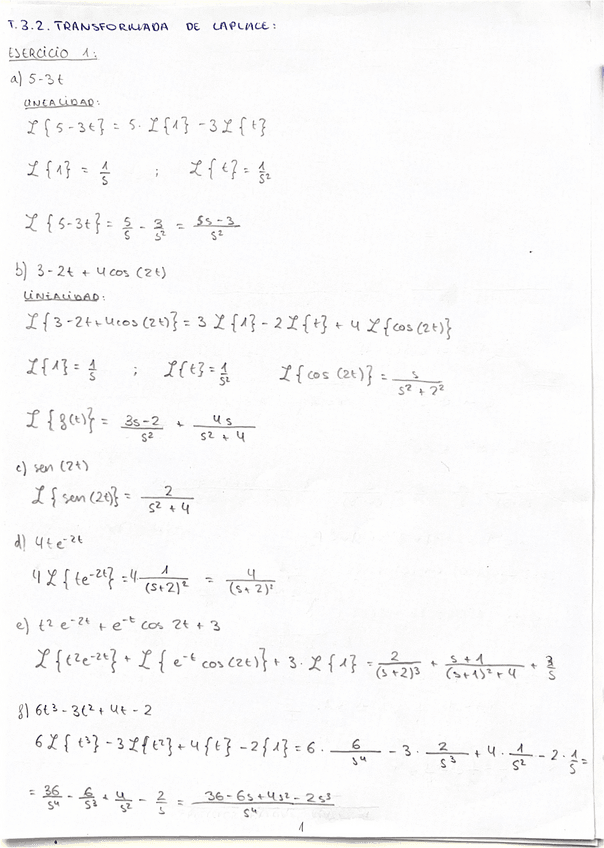 T.3.2. TRANSFORMADA DE LAPLACE:
EJERCICIO 1:
a) 5-3t
LINEALIDAD:
ℒ{5-3t} = 5·ℒ{1} - 3ℒ{t}
ℒ{1} = 1/s ; ℒ{t} = 1/s²
ℒ{5-3t} = 5/s - 3/s² = (5s-3)/s²
b) 3-2t + 4cos (2t)
LINEALIDAD:
ℒ{3-2t+4cos(2t)} = 3ℒ{1} - 2ℒ{t} + 4ℒ{cos(2t)}
ℒ{1} = 1/s ; ℒ{t} = 1/s² ℒ{cos (2t)} = s/(s²+2²)
ℒ{f(t)} = (3s-2)/s² + 4s/(s²+4)
c) sen (2t)
ℒ{sen (2t)} = 2/(s²+4)
d) 4te⁻²ᵗ
4ℒ{te⁻²ᵗ} = 4 1/(s+2)² = 4/(s+2)²
e) t² e⁻²ᵗ + e⁻ᵗ cos 2t + 3
ℒ{t²e⁻²ᵗ} + ℒ{e⁻ᵗ cos(2t)} + 3·ℒ{1} = 2/(s+2)³ + (s+1)/((s+1)²+4) + 3/s
f) 6t³ - 3t² + 4t - 2
6ℒ{t³} - 3ℒ{t²} + 4{t} - 2{1} = 6· 6/s⁴ - 3· 2/s³ + 4· 1/s² - 2· 1/s =
= 36/s⁴ - 6/s³ + 4/s² - 2/s = (36-6s+4s²-2s³)/s⁴
1